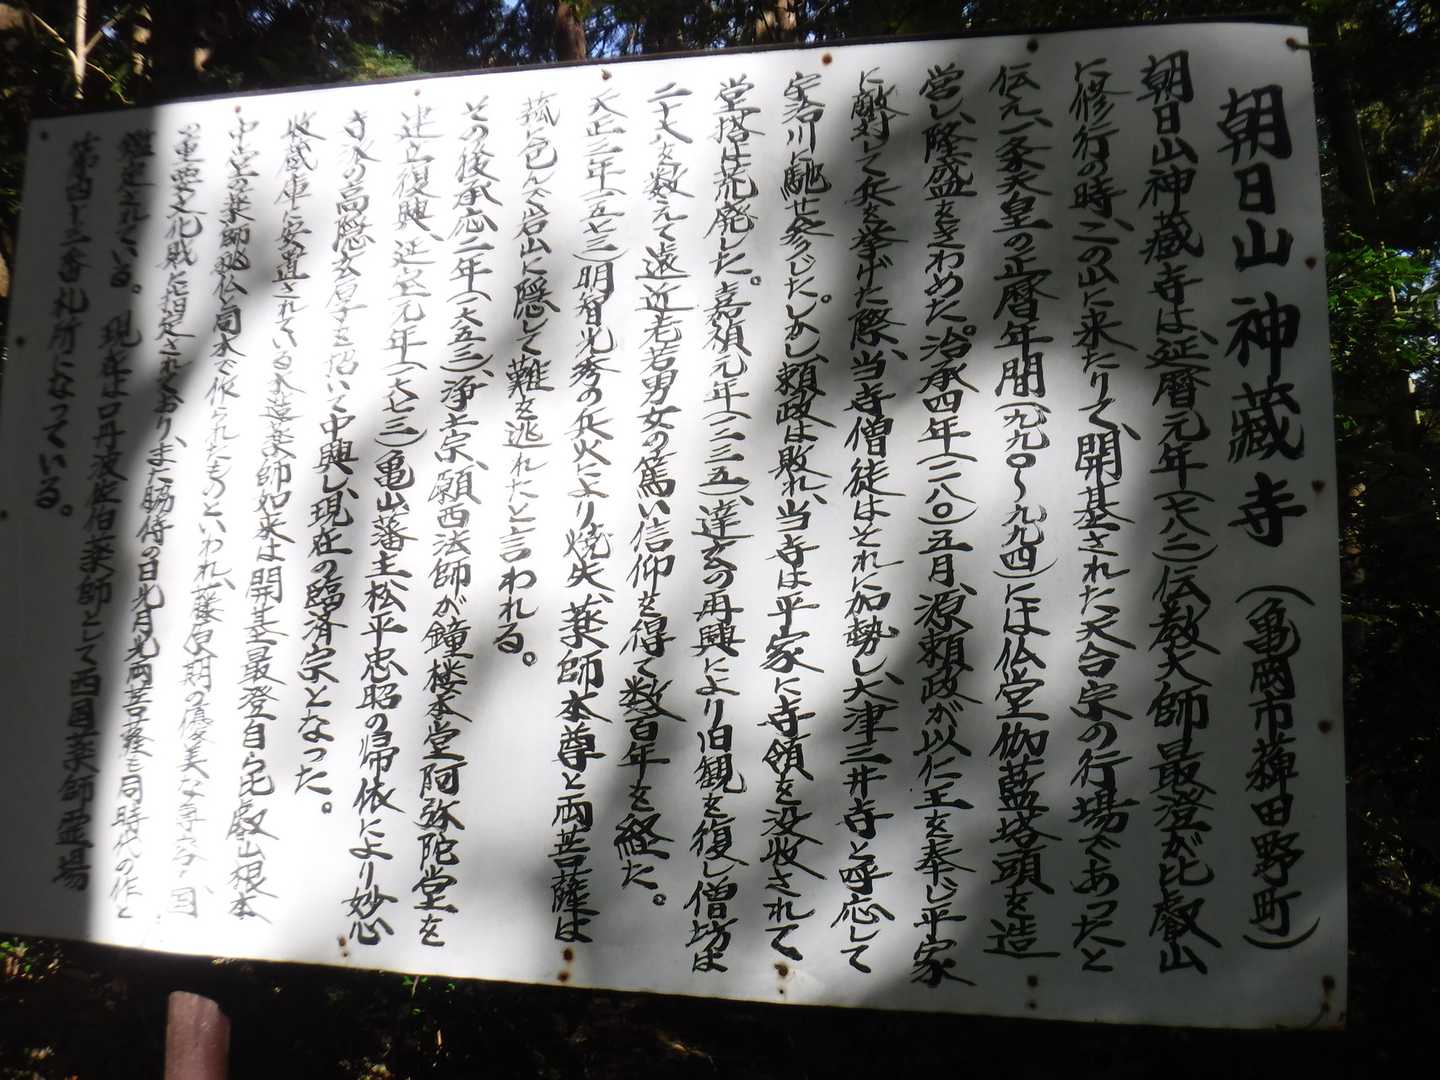 朝日山神蔵寺（亀岡市薭田野町）
朝日山神蔵寺は、延暦元年（七八二）伝教大師最澄が比叡山
に修行の時、この山に来たりて、開基された天台宗の行場であったと
伝え、一条天皇の正暦年間（九九〇～九九四）には仏堂伽藍塔頭を造
営し、隆盛をきわめた。治承四年（一一八〇）五月、源頼政が以仁王を奉じ平家
に敵対して兵を挙げた際、当寺僧徒はそれに加勢し、大津三井寺と呼応して
宇治川に馳せ参じた。しかし頼政は敗れ、当寺は平家に寺領を没収されて
堂塔は荒廃した。嘉禎元年（一二三五）、達玄の再興により旧観を復し僧坊は
二十六を数えて遠近老若男女の篤い信仰を得て数百年を経た。
天正三年（一五七三）明智光秀の兵火により焼失、薬師本尊と両菩薩は
菰に包んで岩山に隠して難を逃れたと言われる。
その後承応二年（一六五三）、浄土宗、願西法師が鐘楼本堂阿弥陀堂を
建立復興、延宝元年（一六七三）亀山藩主松平忠昭の帰依により妙心
寺派の高隠玄厚子を招いて中興し、現在の臨済宗となった。
収蔵庫に安置されている本尊薬師如来は開基最澄自ら比叡山根本
中堂の薬師秘仏と同木で作られたものといわれ、藤原期の優美な尊容は国
の重要文化財に指定されており、また脇侍の日光月光両菩薩も同時代の作と
鑑定されている。現在は口丹波佐伯薬師として西国薬師霊場
第四十三番札所になっている。